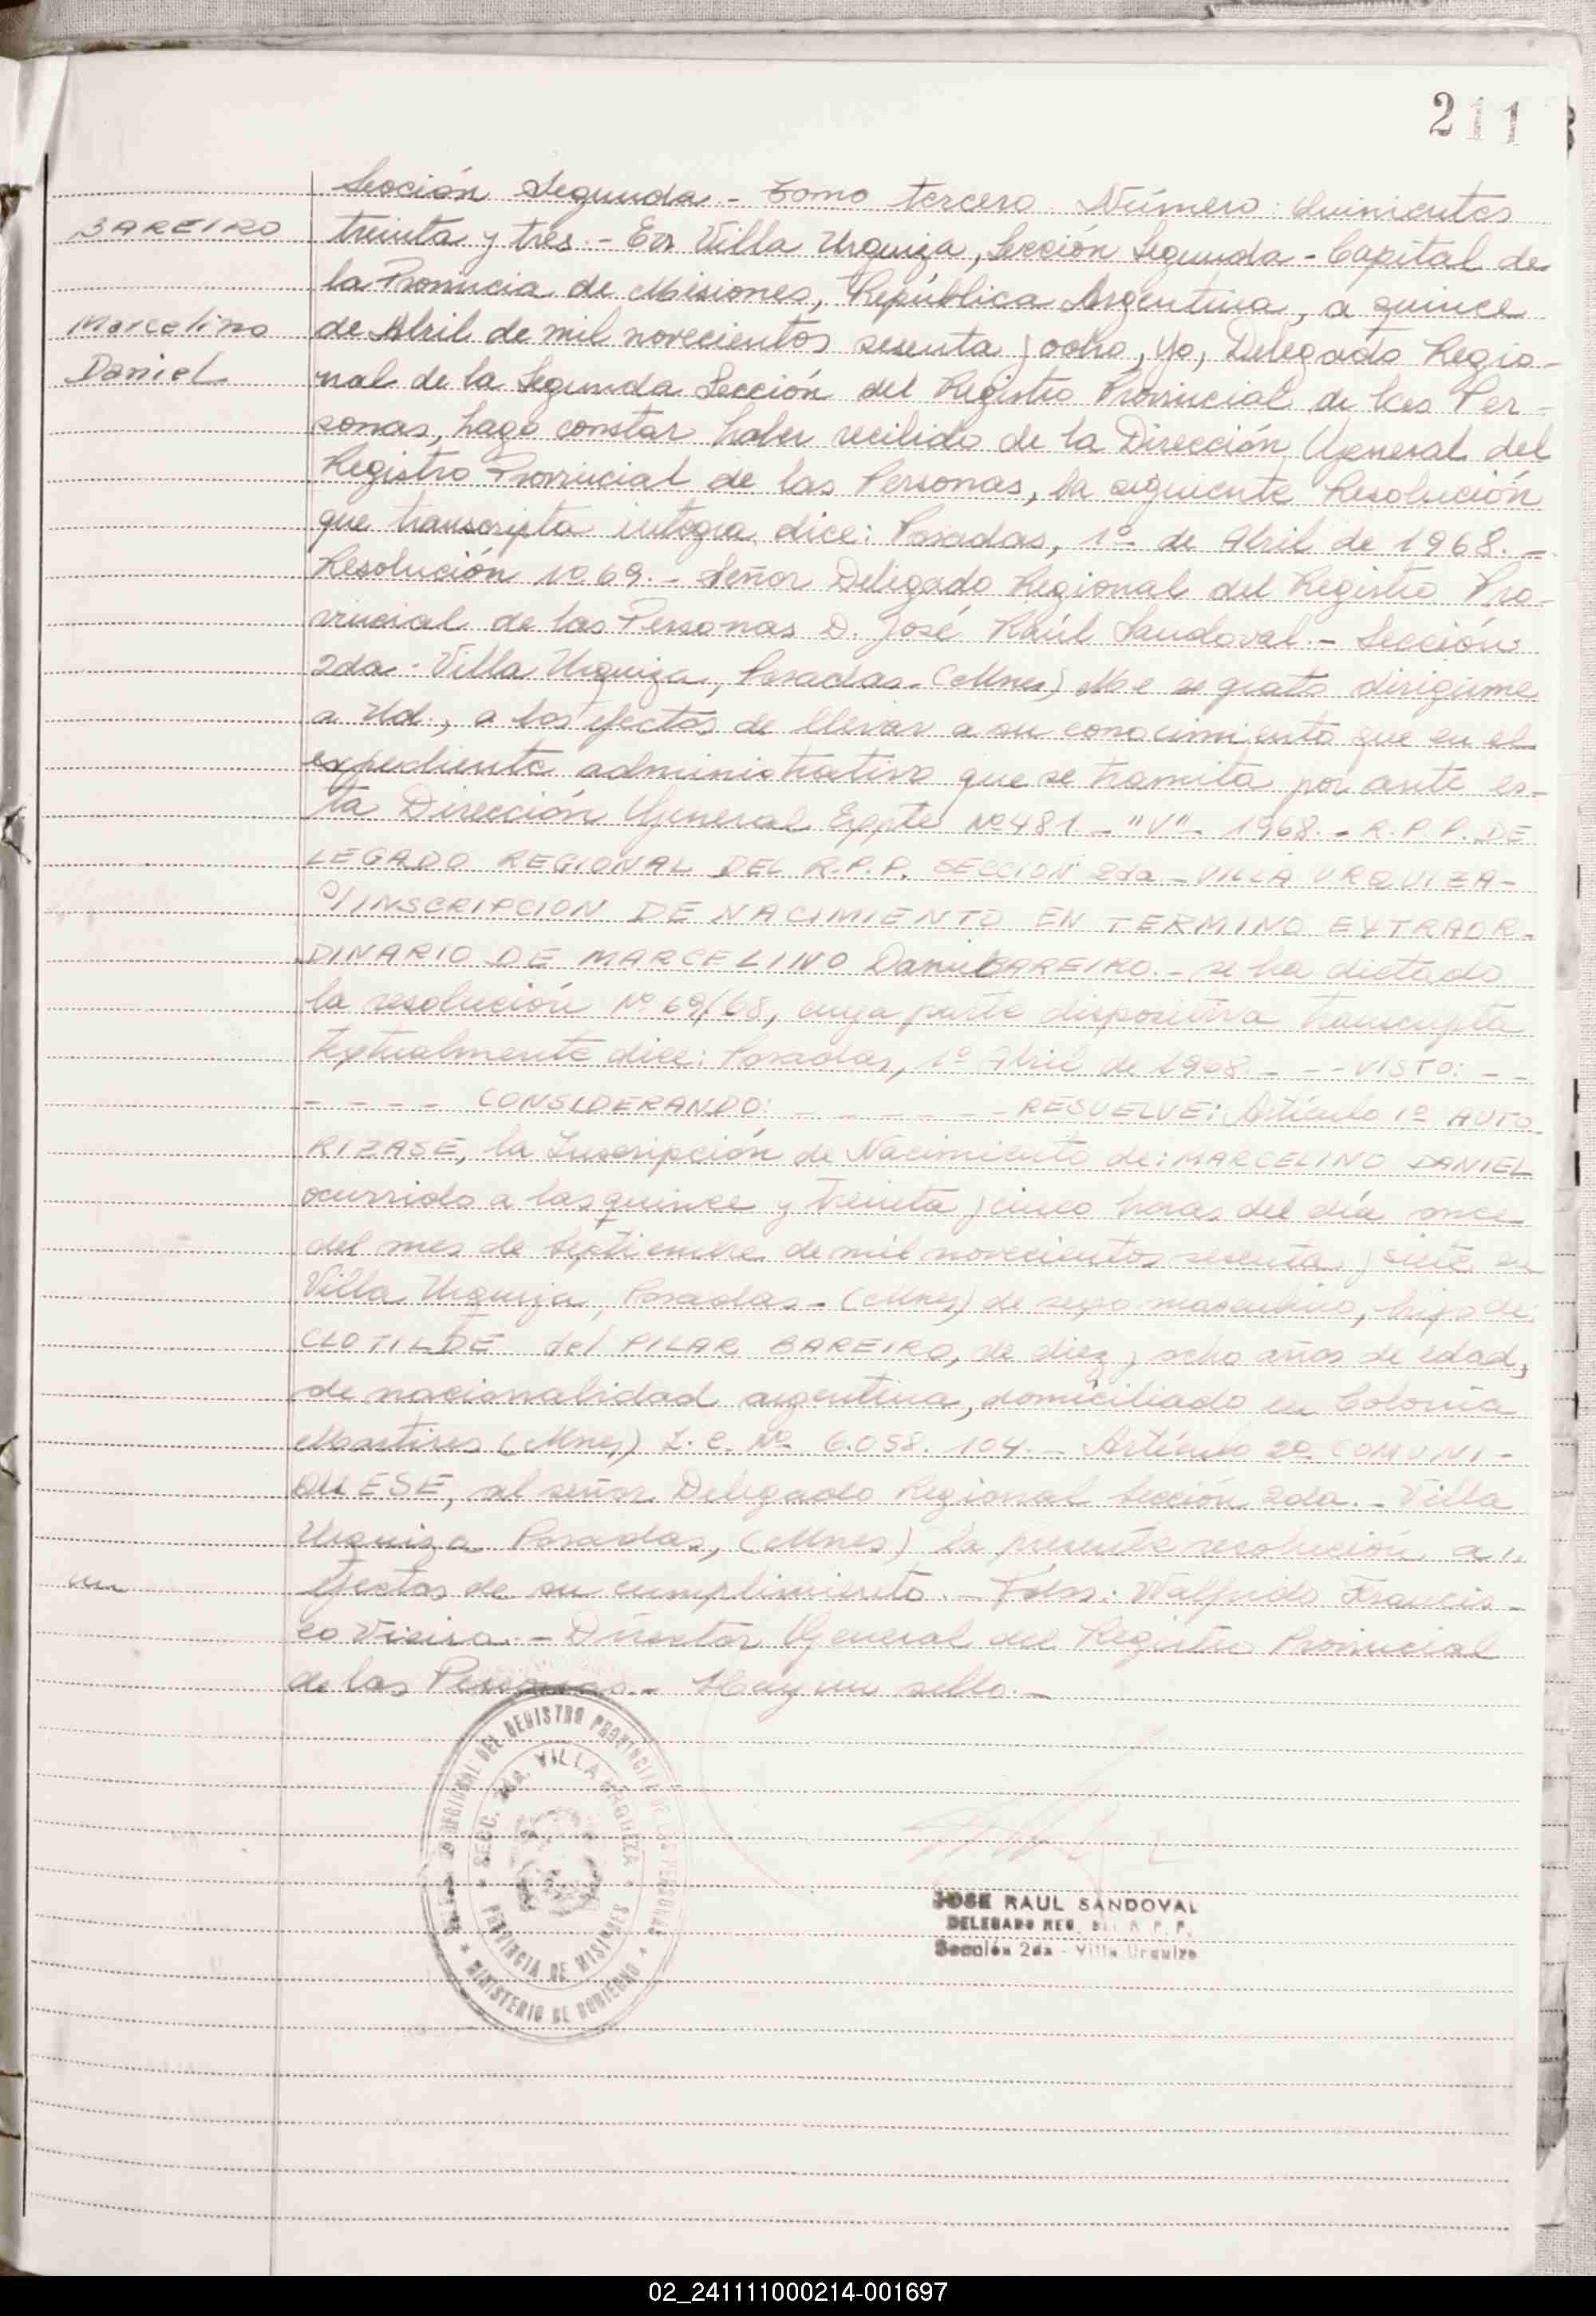 211
Sección Segunda - Tomo tercero. Número: Quinientos
BAREIRO
treinta y tres.- En Villa Urquiza, Sección Segunda - Capital de
la Provincia de Misiones, República Argentina, a quince
Marcelino
de Abril de mil novecientos sesenta y ocho, yo, Delegado Regio-
Daniel
nal de la Segunda Sección del Registro Provincial de las Per-
sonas, hago constar haber recibido de la Dirección General del
Registro Provincial de las Personas, la siguiente Resolución
que transcripta integra dice: Posadas, 1º de Abril de 1968. -
Resolución nº 69. - Señor Delegado Regional del Registro Pro-
vincial de las Personas D. José Raúl Sandoval. - Sección
2da - Villa Urquiza, Posadas - (Mnes) Me es grato dirigirme
a Ud., a los efectos de llevar a su conocimiento que en el
expediente administrativo que se tramita por ante es-
ta Dirección General Exppte Nº 481 - "V" - 1968. - R.P.P. DE
LEGADO REGIONAL DEL R.P.P. SECCION 2da - VILLA URQUIZA -
S/INSCRIPCION DE NACIMIENTO EN TERMINO EXTRAOR-
DINARIO DE MARCELINO Daniel BAREIRO. - se ha dictado
la resolución Nº 69/68, cuya parte dispositiva transcripta
textualmente dice: Posadas, 1º Abril de 1968. - - - VISTO: - -
- - - - CONSIDERANDO: - - - - - - RESUELVE: Artículo 1º AUTO
RIZASE, la Inscripción de Nacimiento de: MARCELINO DANIEL
ocurrido a las quince y treinta y cinco horas del día once
del mes de Septiembre de mil novecientos sesenta y siete en
Villa Urquiza, Posadas - (Mnes) de sexo masculino, hijo de:
CLOTILDE del PILAR BAREIRO, de diez y ocho años de edad,
de nacionalidad argentina, domiciliado en Colonia
Martires (Mnes) L.C. Nº 6.058.104. - Artículo 2º COMUNI-
QUESE, al señor Delegado Regional Sección 2da. - Villa
Urquiza Posadas, (Mnes) la presente resolución, a
efectos de su cumplimiento. - Fdos: Walfrido Francis-
co Vieira. - Director General del Registro Provincial
de las Personas. - Hay un sello. -
REGIONAL DEL REGISTRO PROVINCIAL DE LAS PERSONAS
SECC. 2da. VILLA URQUIZA
PROVINCIA DE MISIONES
MINISTERIO DE GOBIERNO
JOSE RAUL SANDOVAL
DELEGADO REG. DEL R. P. P.
Sección 2da - Villa Urquiza
02_241111000214-001697